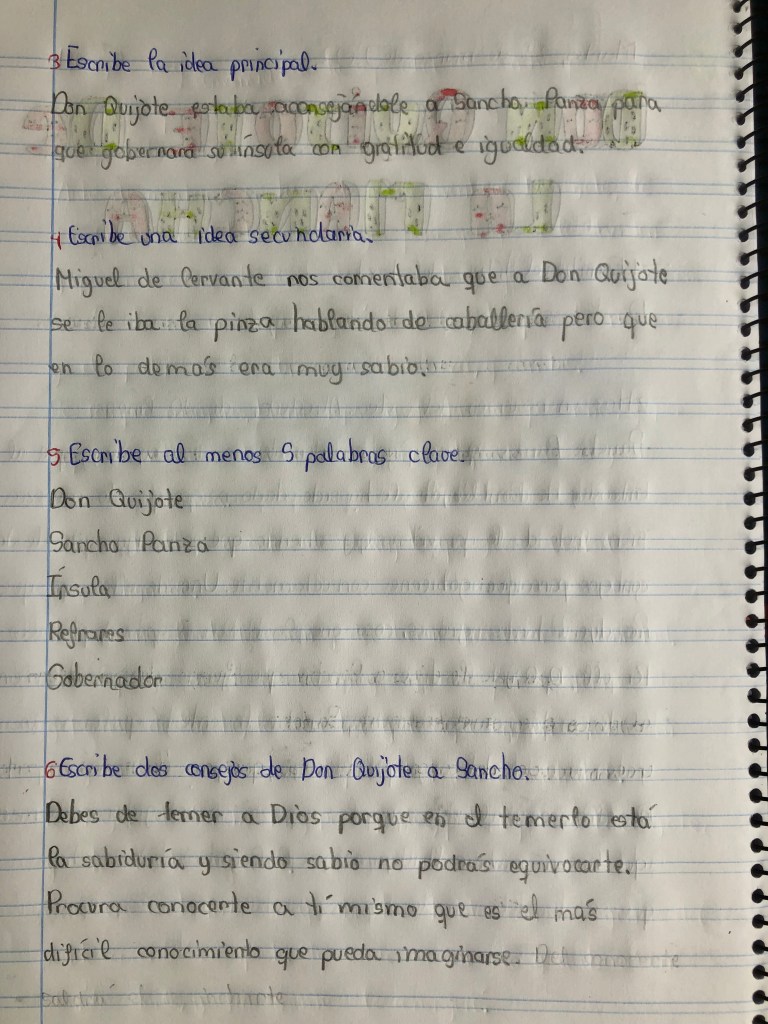 3 Escribe la idea principal.
Don Quijote estaba aconsejándole a Sancho Panza para
que gobernara su ínsula con gratitud e igualdad.
4 Escribe una idea secundaria.
Miguel de Cervante nos comentaba que a Don Quijote
se le iba la pinza hablando de caballería pero que
en lo demás era muy sabio.
5 Escribe al menos 5 palabras clave.
Don Quijote
Sancho Panza
Ínsula
Refranes
Gobernador
6 Escribe dos consejos de Don Quijote a Sancho.
Debes de temer a Dios porque en el temerlo está
la sabiduría y siendo sabio no podrás equivocarte.
Procura conocerte a tí mismo que es el más
difícil conocimiento que pueda imaginarse.